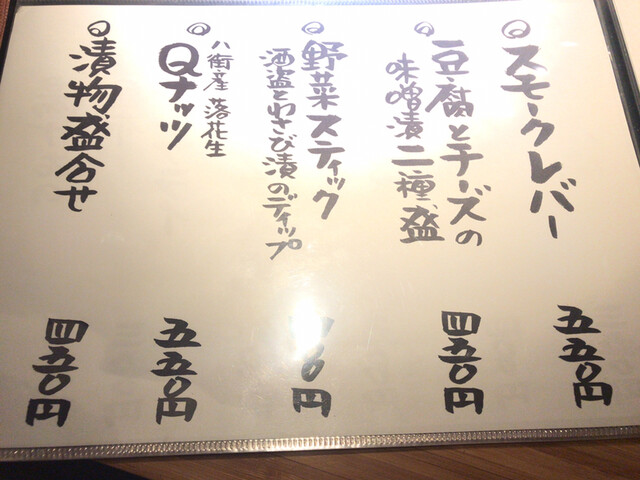 スモークレバー
五五〇円
豆腐とチーズの
味噌漬二種盛
四五〇円
野菜スティック
酒盗とわさび漬のディップ
〇円
Qナッツ
八街産 落花生
五五〇円
漬物盛合せ
四五〇円